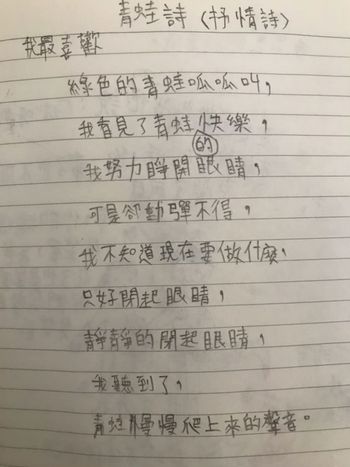 青蛙詩(抒情詩)
我最喜歡
綠色的青蛙呱呱叫,
我看見了青蛙快樂,
(的)
我努力睜開眼睛,
可是卻動彈不得,
我不知道現在要做什麼,
只好閉起眼睛,
靜靜的閉起眼睛,
我聽到了,
青蛙慢慢爬上來的聲音。